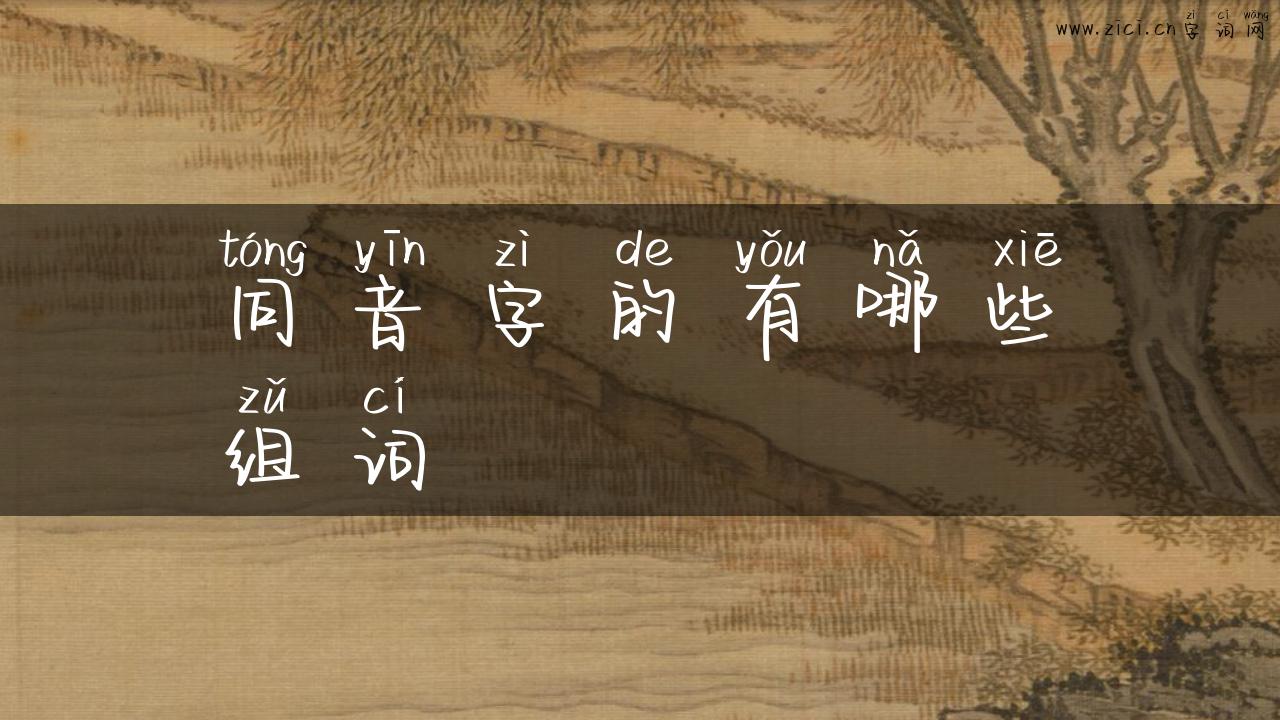 zì cí wǎng
www.zici.cn字词网
tóng yīn zì de yǒu nǎ xiē
同音字的有哪些
zǔ cí
组词